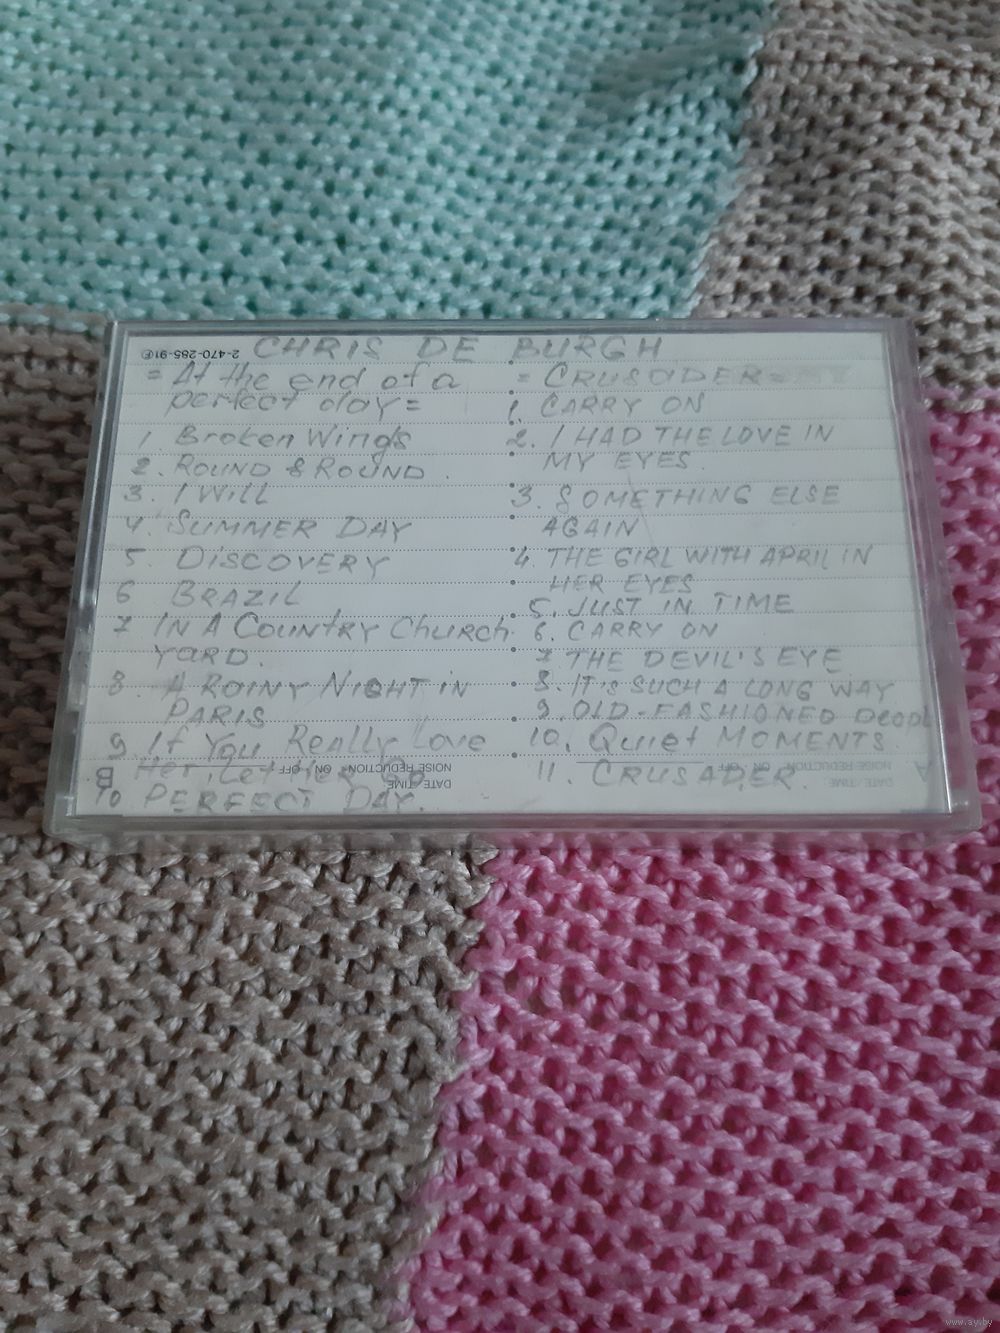 2-470-285-91
CHRIS DE BURGH
= At the end of a
perfect day =
1 Broken Wings
2. ROUND & ROUND
3. I WILL
4. SUMMER DAY
5. DISCOVERY
6 BRAZIL
7 IN A COUNTRY CHURCH
YARD.
8. A RAINY NIGHT IN
PARIS
9. If You Really Love
Her, Let Her Go
10 PERFECT DAY.
B
DATE/TIME
NOISE REDUCTION ON OFF
= CRUSADER =
1. CARRY ON
2. I HAD THE LOVE IN
MY EYES.
3. SOMETHING ELSE
AGAIN
4. THE GIRL WITH APRIL IN
HER EYES
5. JUST IN TIME
6. CARRY ON
7. THE DEVIL'S EYE
8. IT'S SUCH A LONG WAY
9. OLD-FASHIONED
10. Quiet MOMENTS
11. CRUSADER.
A
DATE/TIME
NOISE REDUCTION ON OFF
www.ay.by